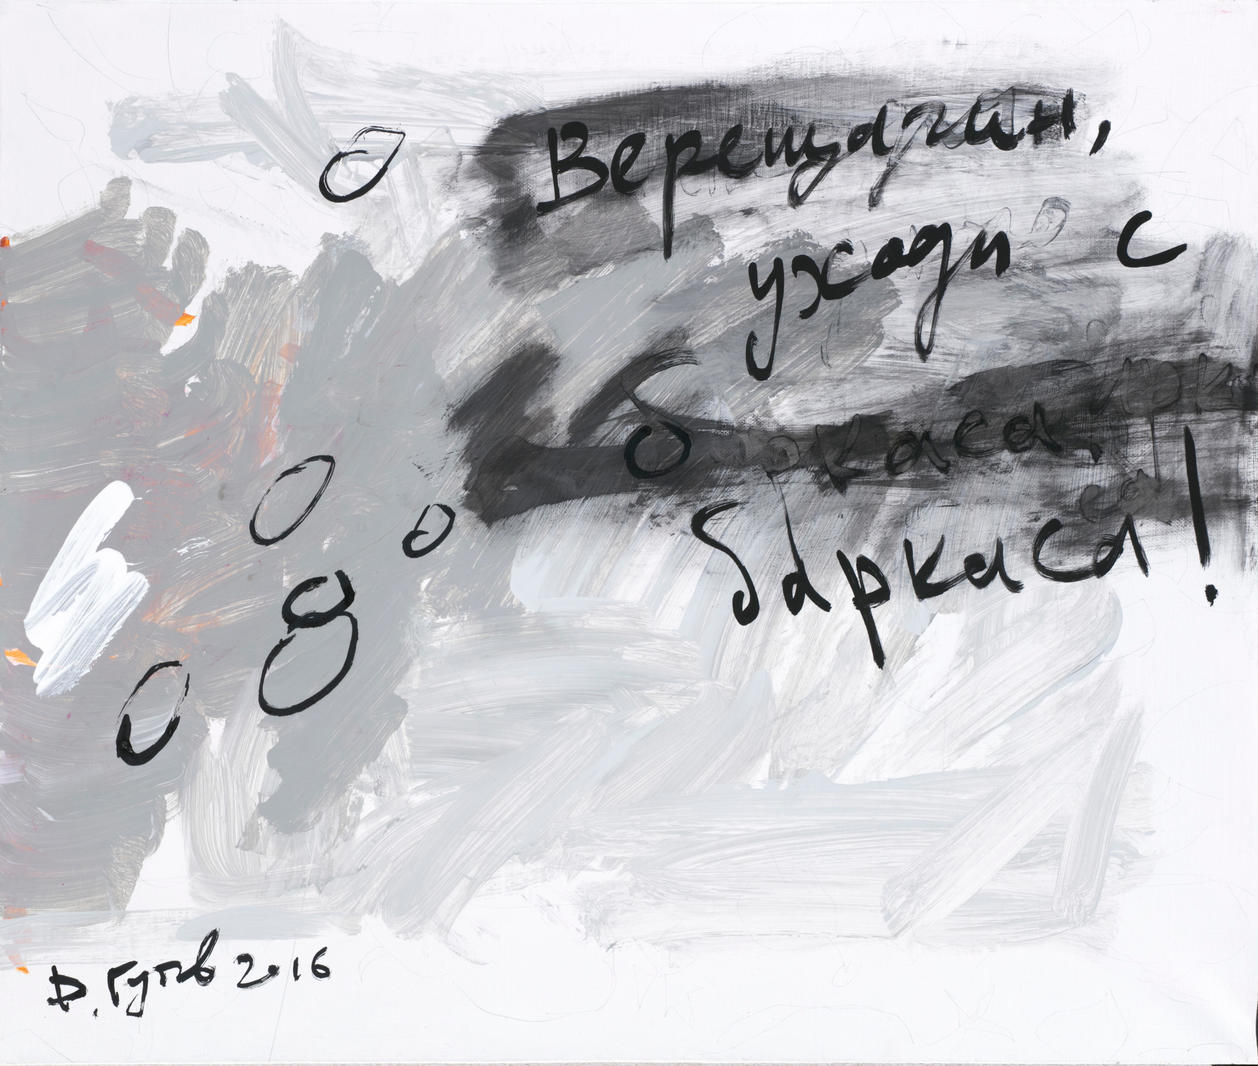 Верещагин,
уходи с
баркаса,
баркаса!
Д. Гутов 2016